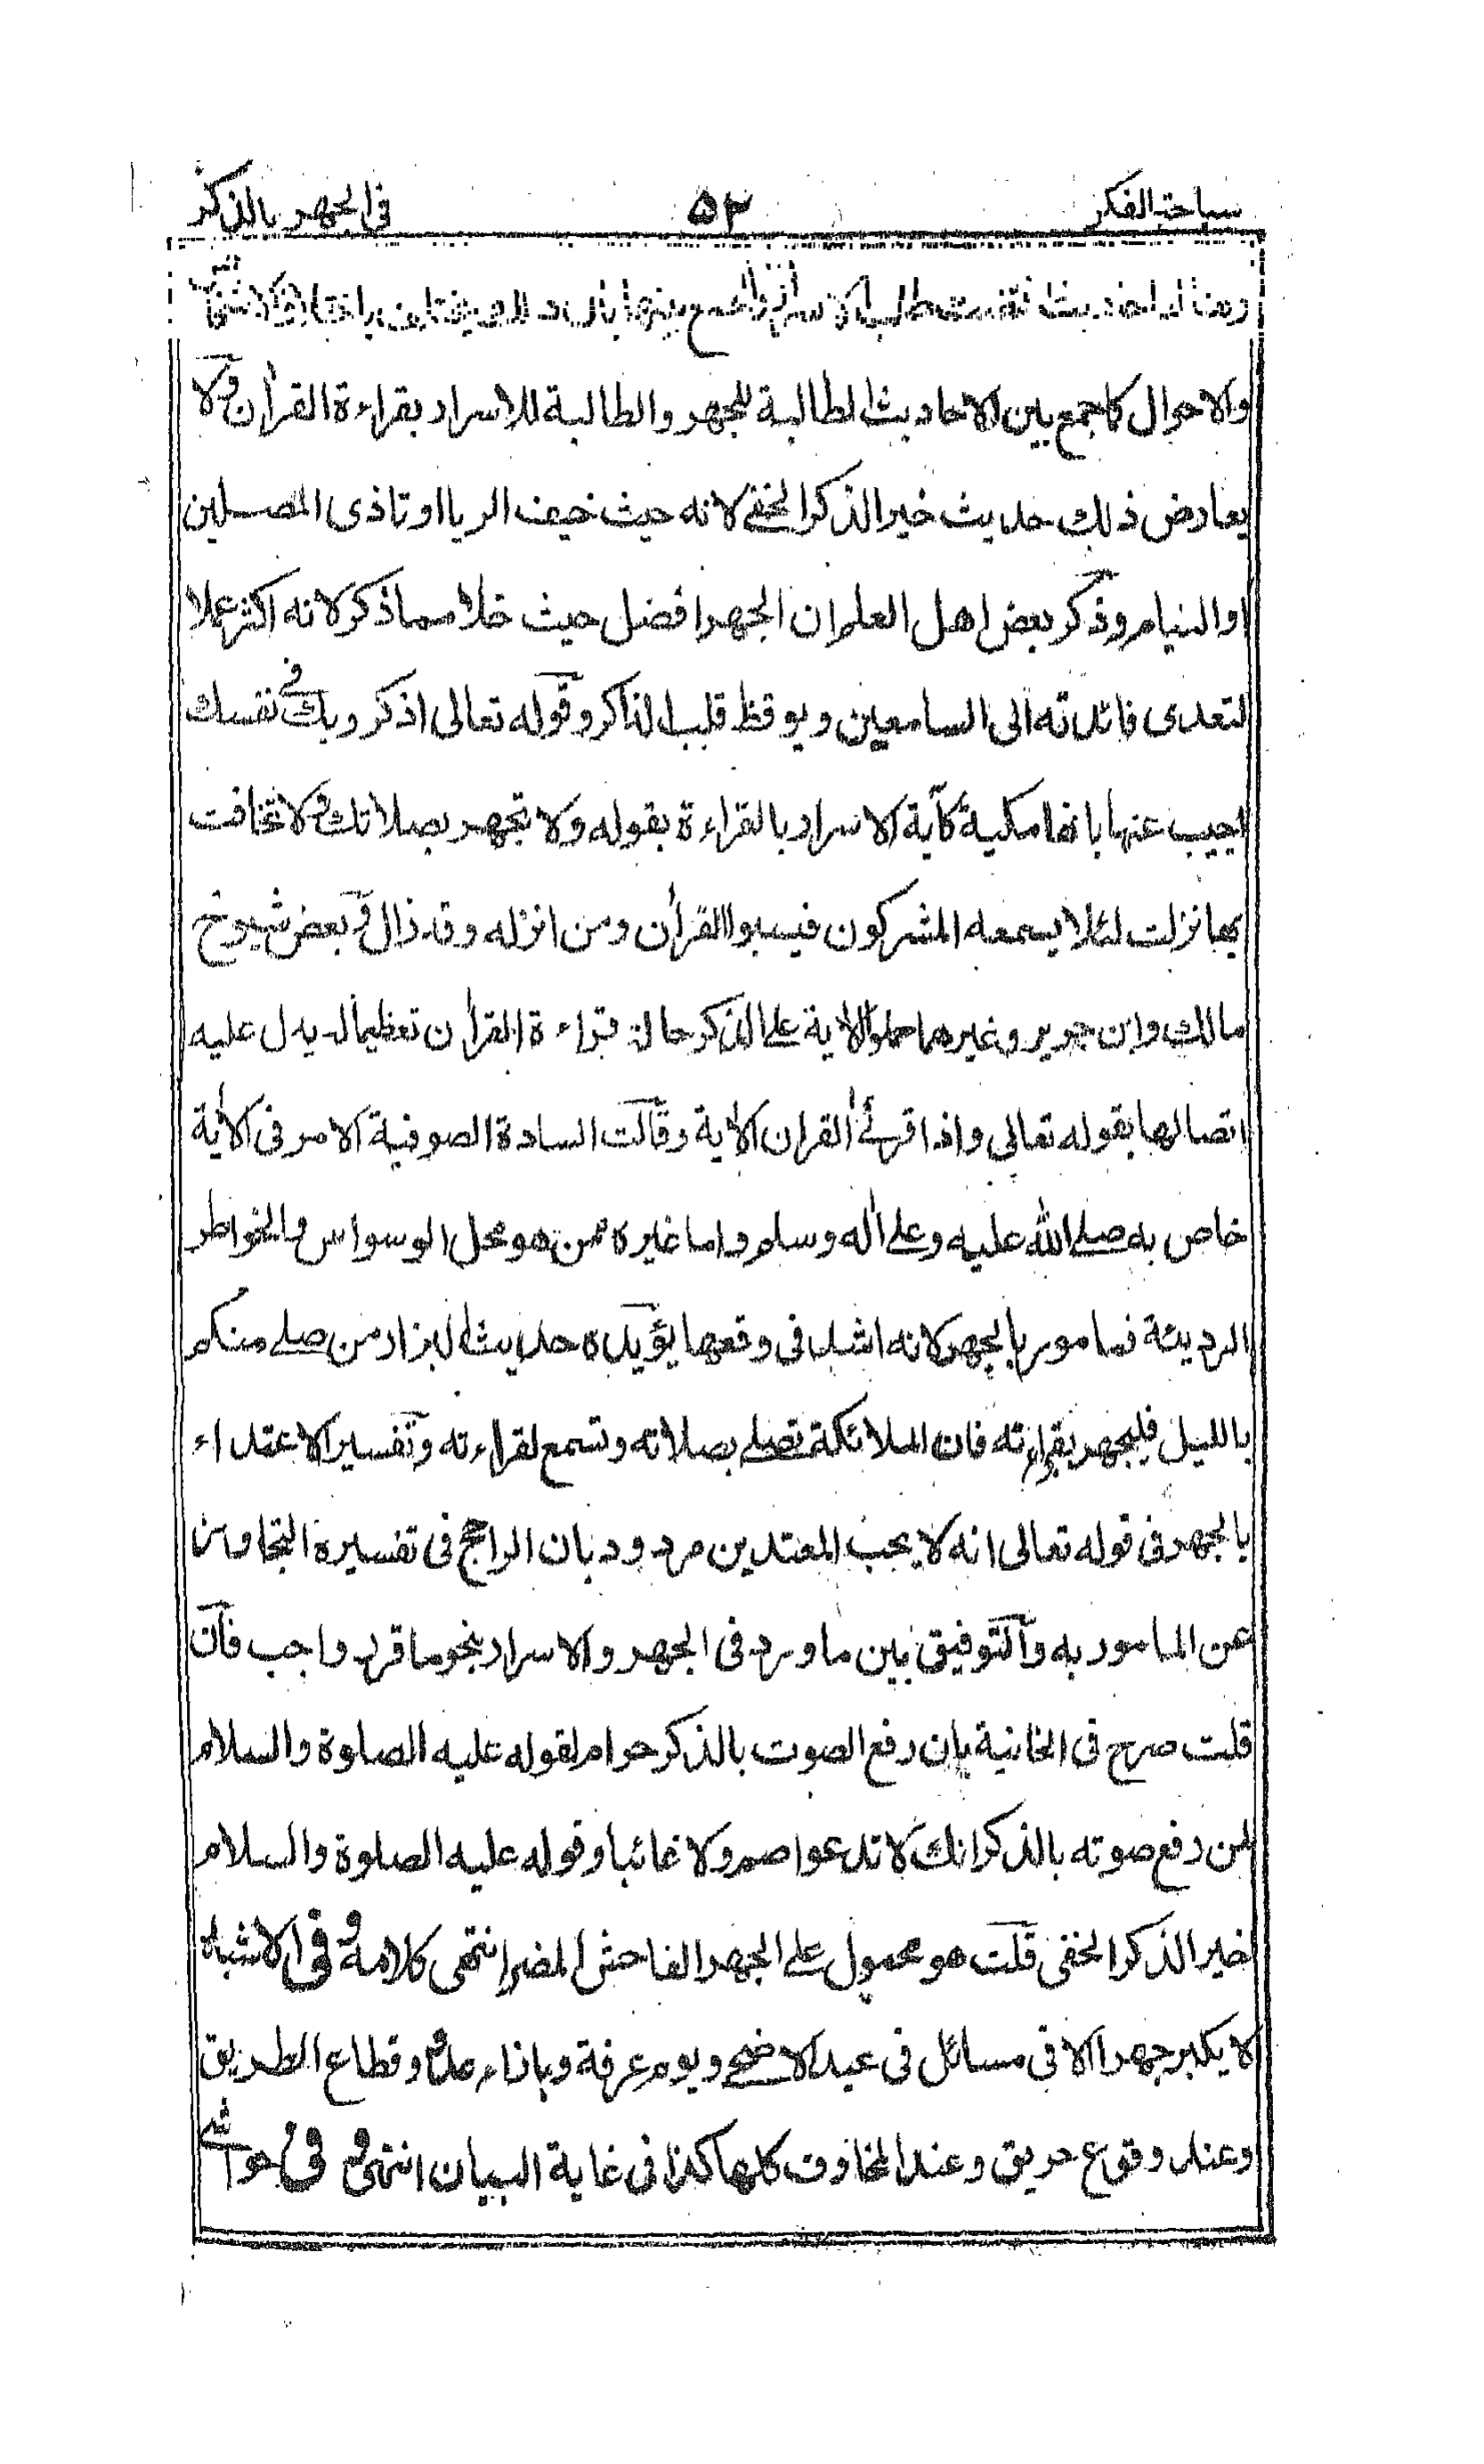 سباحة الفكر ۵۲ فى الجهر بالذكر
وهناك احاديث اقتضت طلب الاسرار والجمع بينهما بان ذلك يختلف باختلاف الاشخاص
والاحوال كما جمع بين الاحاديث الطالبة للجهر والطالبة للاسرار بقراءة القرأن ولا
يعارض ذلك حديث خير الذكر الخفے لانه حيث خيف الريا او تاذى المصلين
او النيام وذكر بعض اهل العلم ان الجهر افضل حيث خلا مما ذكر لانه اكثر عملا
لتعدى فائدته الى السامعين ويوقظ قلب الذاكر وقوله تعالى اذكر ربك فے نفسك
اجيب عنها بانها مكية كآية الاسرار بالقراءة بقوله ولا تجهر بصلاتك ولا تخافت
بها نزلت لئلا يسمعه المشركون فيسبوا القرأن ومن انزله وقد زال وبعض شيوخ
مالك وابن جرير وغيرهما حملوا الأية على الذكر حالة قراءة القرأن تعظيما له يدل عليه
اتصالها بقوله تعالى واذا قرئ القران الأية وقالت السادة الصوفية الامر فى الأية
خاص به صلے الله عليه وعلى أله وسلم واما غيره ممن هو محل الوسواس والخواطر
الرديئة فمامور بالجهر لانه اشد فى وقعها يؤيده حديث البزار من صلے منكم
بالليل فليجهر بقراءته فان الملائكة تصلے بصلاته وتسمع لقراءته وتفسير الاعتداء
بالجهر فى قوله تعالى انه لا يحب المعتدين مردود بان الراجح فى تفسيره التجاوز
عن المامور به والتوفيق بين ما ورد فى الجهر والاسرار بنحو ما قرر واجب فان
قلت صرح فى الخانية بان رفع الصوت بالذكر حرام لقوله عليه الصلوة والسلام
لمن رفع صوته بالذكر انك لا تدعو اصم ولا غائبا وقوله عليه الصلوة والسلام
خير الذكر الخفى قلت هو محمول على الجهر الفاحش المضر انتهى كلامه وفى الاشباه
لا يكبر جهرا الا فى مسائل فى عيد الاضحے ويوم عرفة وبازاء عدو وقطاع الطريق
وعند وقوع حريق وعند المخاوف كلها كذا فى غاية البيان انتهى وفى حواشے